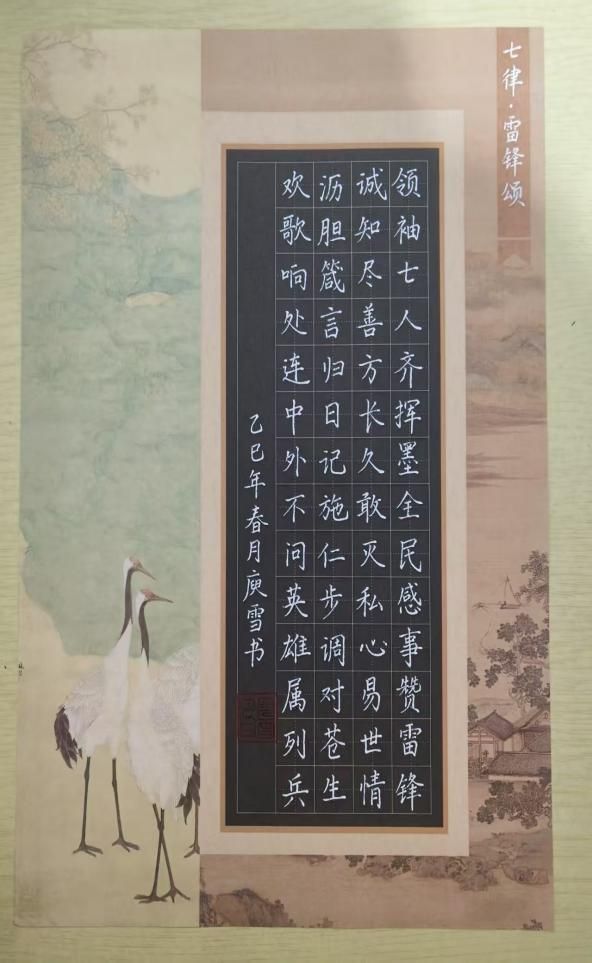 七律·雷锋颂
领袖七人齐挥墨全民感事赞雷锋
诚知尽善方长久敢灭私心易世情
沥胆箴言归日记施仁步调对苍生
欢歌响处连中外不问英雄属列兵
乙巳年春月庾雪书